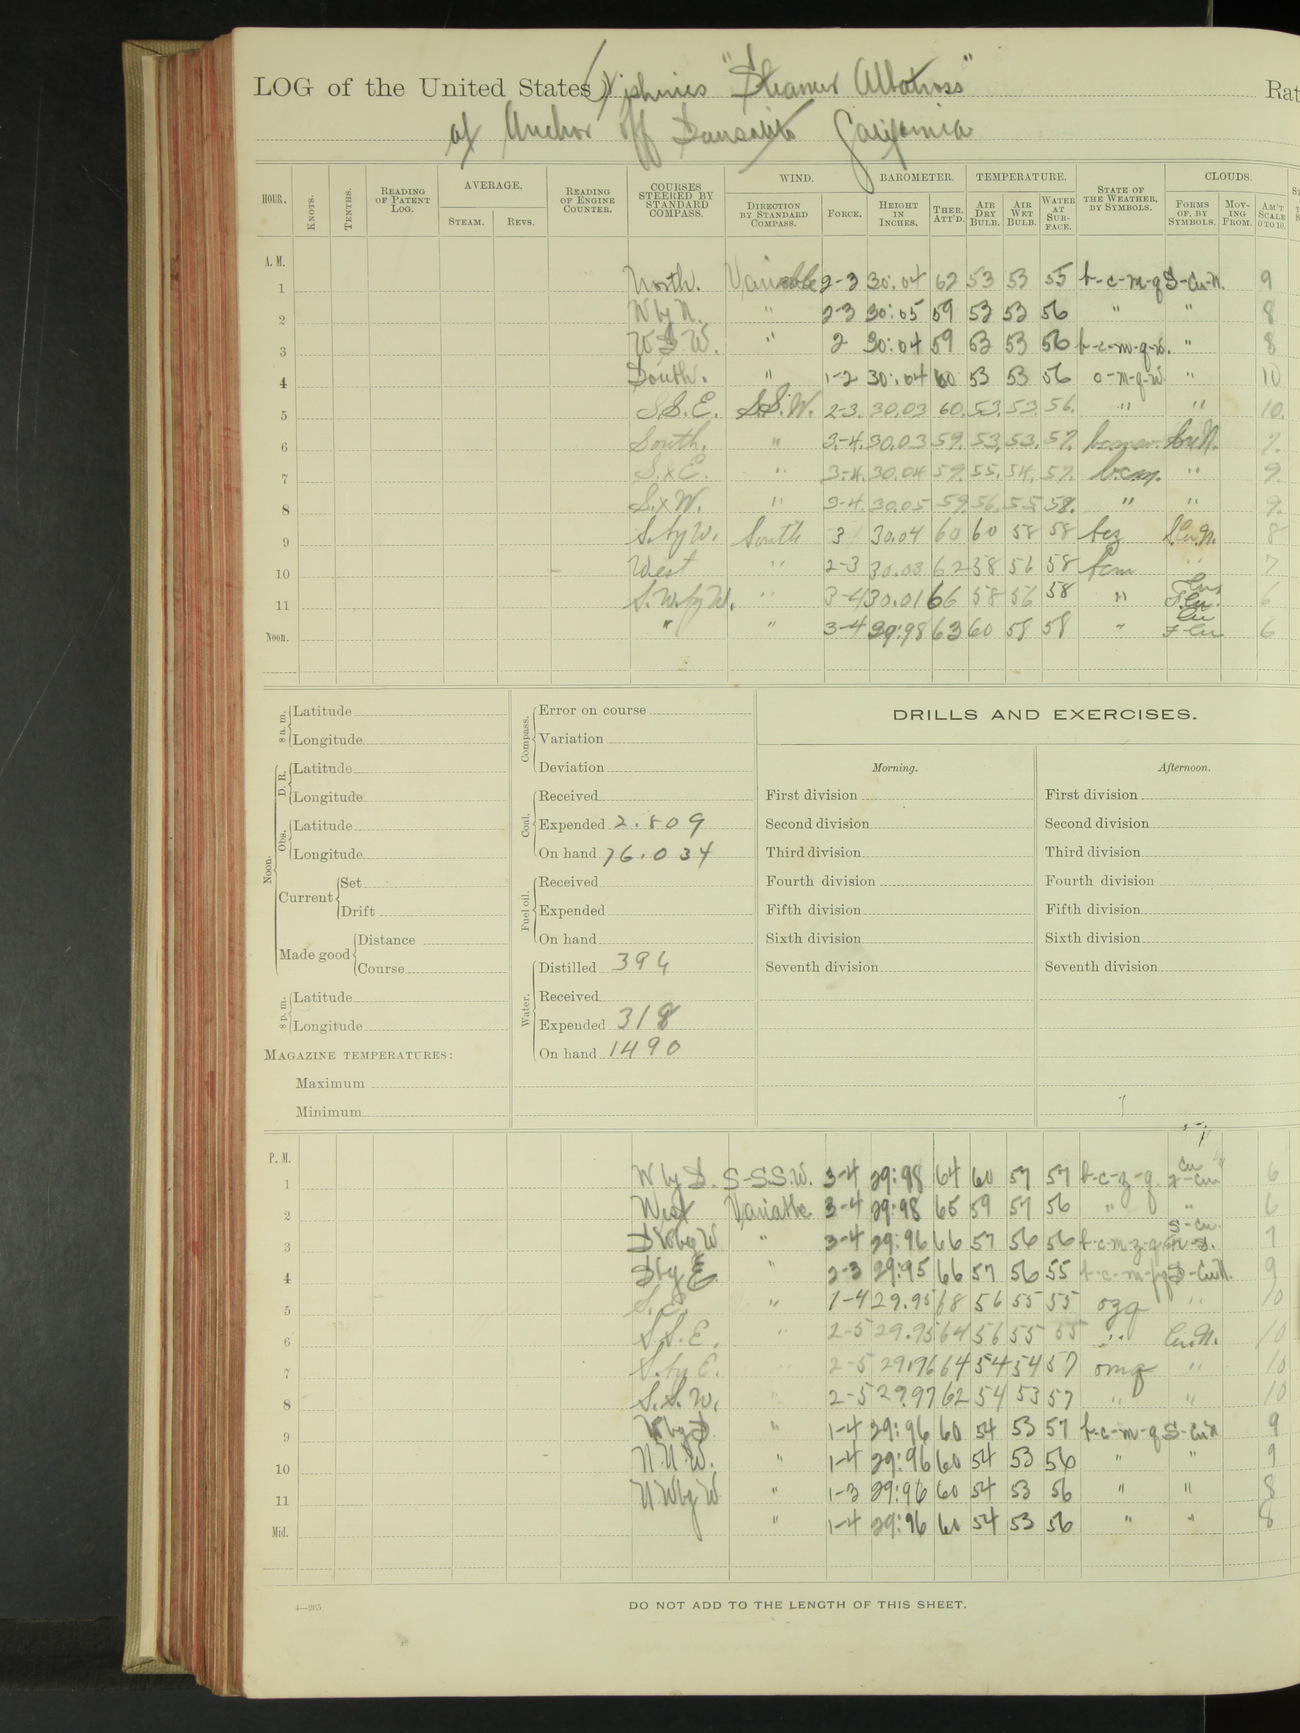 LOG of the United States Fisheries "Steamer Albatross" Rat
at Anchor off Sausalito California
HOUR. KNOTS. TENTHS. READING OF PATENT LOG. AVERAGE. STEAM. REVS. READING OF ENGINE COUNTER. COURSES STEERED BY STANDARD COMPASS. WIND. DIRECTION BY STANDARD COMPASS. FORCE. BAROMETER. HEIGHT IN INCHES. THER. ATT'D. TEMPERATURE. AIR DRY BULB. AIR WET BULB. WATER AT SURFACE. STATE OF THE WEATHER, BY SYMBOLS. CLOUDS. FORMS OF, BY SYMBOLS. MOVING FROM. AM'T SCALE 0 TO 10.
A. M.
1 North. Variable 2-3 30:04 62 53 53 55 b-c-m-q S-Cu-N. 9
2 W by N. " 2-3 30:05 59 53 53 56 " " 8
3 W S W. " 2 30:04 59 53 53 56 b-c-m-q-w. " 8
4 South. " 1-2 30:04 60 53 53 56 o-m-q-w " 10
5 S.S.E. S.S.W. 2-3. 30.03 60. 53. 53. 56. " " 10.
6 South. " 3-4. 30.03 59. 53. 53. 57. Cu.N. 9.
7 S.xE. " 3-4. 30.04 59. 55. 54. 57. b.c.m. " 9.
8 S.xW. " 3-4. 30.05 59. 56. 55 58. " " 9.
9 S. by W. South 3 30.04 60 60 58 58 bcz S.Cu.N. 8
10 West " 2-3 30.03 62 58 56 58 bcm " 7
11 S.W. by W. " 3-4 30.01 66 58 56 58 " 6
Noon. " " 3-4 29:98 63 60 58 58 " Cu F-Cu 6
8 a. m. Latitude
Longitude
Noon. D. R. Latitude
Longitude
Obs. Latitude
Longitude
Current Set
Drift
Made good Distance
Course
8 p. m. Latitude
Longitude
MAGAZINE TEMPERATURES:
Maximum
Minimum
Compass. Error on course
Variation
Deviation
Coal. Received
Expended 2.809
On hand 76.034
Fuel oil. Received
Expended
On hand
Water. Distilled 394
Received
Expended 318
On hand 1490
DRILLS AND EXERCISES.
Morning. Afternoon.
First division First division
Second division Second division
Third division Third division
Fourth division Fourth division
Fifth division Fifth division
Sixth division Sixth division
Seventh division Seventh division
P. M.
1 W by S. S-S.S.W. 3-4 29:98 64 60 57 57 b-c-z-q Cu F-Cu 6
2 West Variable 3-4 29:98 65 59 57 56 " " 6
3 SW by W " 3-4 29:96 66 57 56 56 b-c-m-z-q S-Cu. 7
4 S by E " 2-3 29:95 66 57 56 55 S-Cu N. 9
5 S.E. " 1-4 29.95 68 56 55 55 ozq " 10
6 S.S.E. " 2-5 29.95 64 56 55 55 " Cu.N. 10
7 S. by E. " 2-5 29.96 64 54 54 57 omq " 10
8 S.S.W. " 2-5 29.97 62 54 53 57 " " 10
9 W by S " 1-4 29:96 60 54 53 57 b-c-m-q S-Cu N 9
10 N.N.W. " 1-4 29:96 60 54 53 56 " " 9
11 NW by W " 1-3 29:96 60 54 53 56 " " 8
Mid. " 1-4 29:96 60 54 53 56 " " 8
4—265
DO NOT ADD TO THE LENGTH OF THIS SHEET.